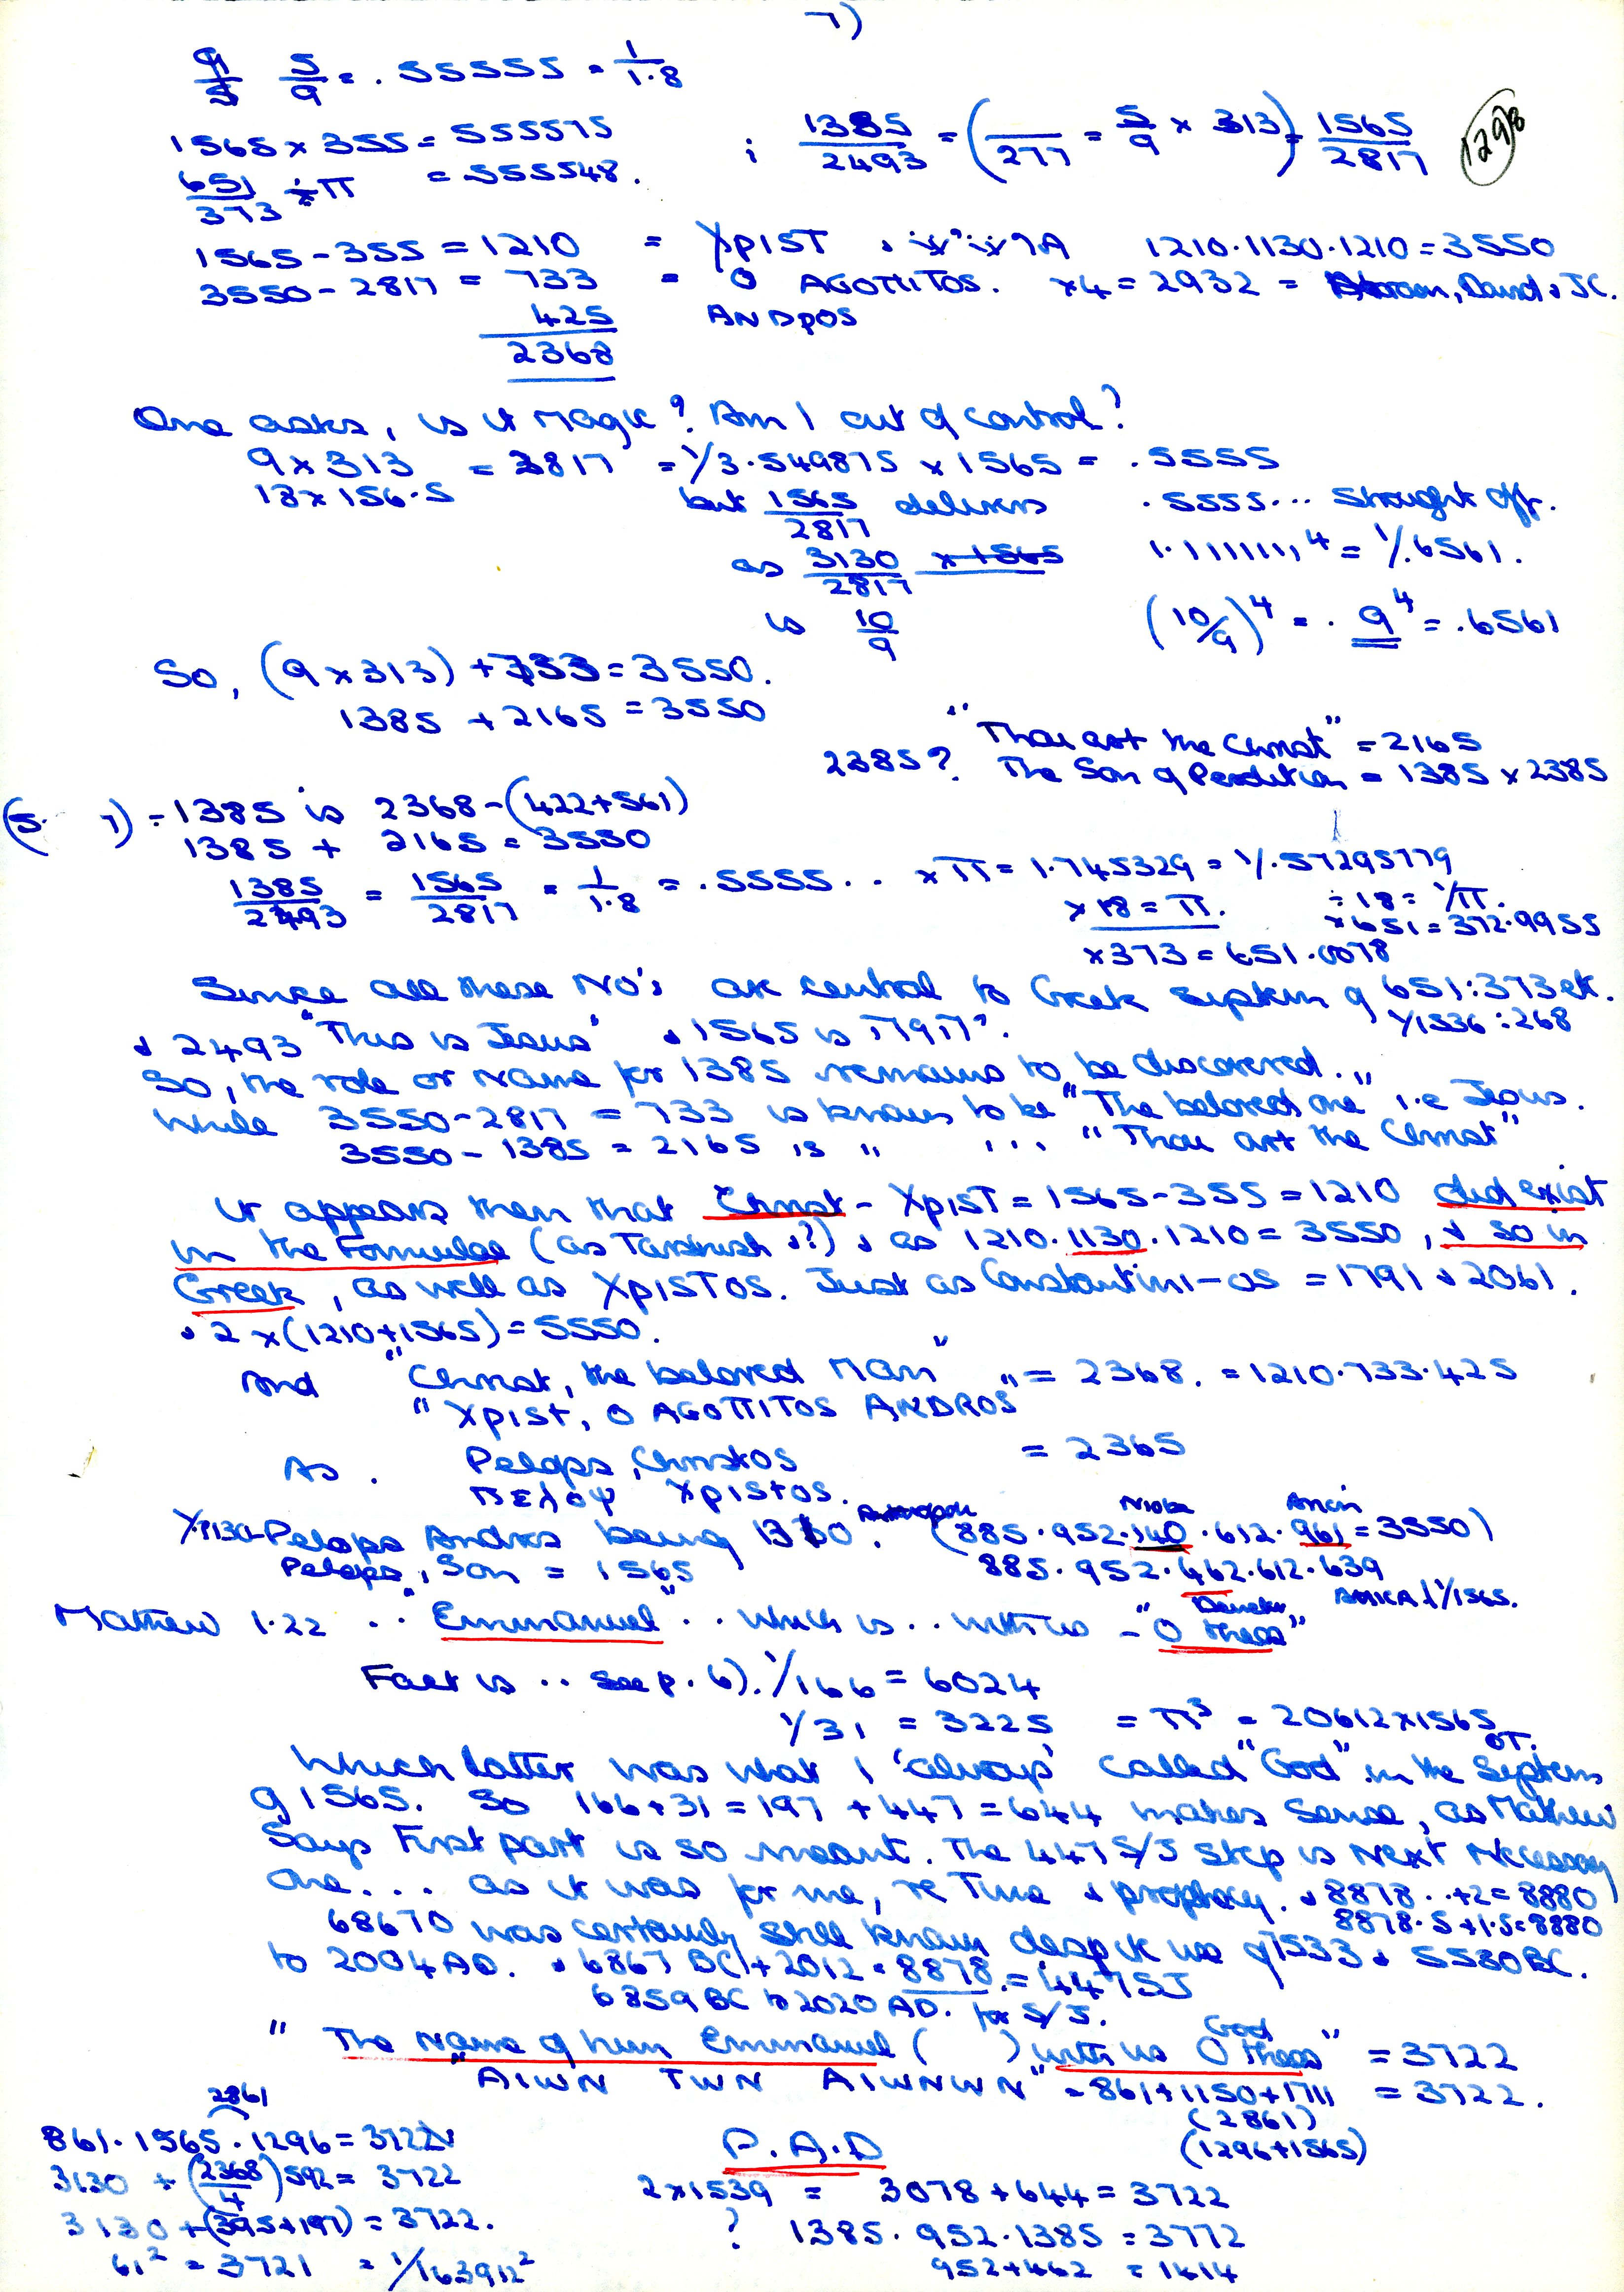 7)
9/5 5/9 = .55555 = 1/1.8
1565 x 355 = 555575 ; 1385/2493 = ( /277 = 5/9 x 313) = 1565/2817 1298
651/373 ÷ π = .555548.
1565 - 355 = 1210 = XPIST 1210.1130.1210 = 3550
3550 - 2817 = 733 = O AGOΠITOS. x4 = 2932 = Abram, David, JC.
425 ANDROS
2368
One asks, is it Magic? Am I out of control?
9 x 313 = 2817 = 1/3.549875 x 1565 = .5555
18 x 156.5 but 1565/2817 delivers .5555... straight off.
as 3130/2817 x 1565 1.1111111,4 = 1/.6561.
is 10/9 (10/9)4 = .94 = .6561
So, (9 x 313) + 733 = 3550.
1385 + 2165 = 3550
"Thou art the Christ" = 2165
2385? The Son of Perdition = 1385 x 2385
(5. 7) - 1385 is 2368 - (422+561)
1385 + 2165 = 3550
1385/2493 = 1565/2817 = 1/1.8 = .5555.. x π = 1.745329 = 1/.57295779
x 18 = π. ÷ 18 = 1/π.
x 651 = 372.9955
x 373 = 651.0078
Since all these No's are central to Greek Septem of 651:373 etc.
& 2493 "This is Jesus" & 1565 is 1797?. 1/1536:268
So, the role or Name for 1385 remains to be discovered.
While 3550 - 2817 = 733 is known to be "The beloved one" i.e Jesus.
3550 - 1385 = 2165 is " ... "Thou art the Christ"
It appears then that Christ - XPIST = 1565 - 355 = 1210 did exist
in the Formulae (as Tarshish &?) & as 1210.1130.1210 = 3550, & so in
Greek, as well as XPISTOS. Just as Constantini-os = 1791 & 2061.
& 2 x (1210+1565) = 5550.
And "Christ, the beloved Man" = 2368. = 1210.733.425
"XPIST, O AGOΠITOS ANDROS"
As. Pelops, Christos = 2365
Πελοψ Xpistos.
Pelops Andros being 1310. (885.952.140.612.961 = 3550)
Niobe
Pelops, Son = 1565 885.952.462.612.639
Matthew 1.22 .. "Emmanuel" .. which is .. with us - "O theos"
Fact is .. see p. 6). 1/166 = 6024
1/31 = 3225 = π3 = 20612 x 1565
Which latter was what I 'always' called "God" in the OT. Septem
of 1565. So 166+31 = 197 + 447 = 644 makes sense, as Mathew
says First part is so meant. The 447 S/J step is next necessary
one... as it was for me, re Time & prophecy. & 8878..+2=8880
8878.5+1.5=8880
68670 was certainly still known despite use of 7533 & 5530BC.
to 2004AD. & 6867 BC + 2012 = 8878. = 447SJ
6859BC to 2020AD. for S/J.
"The Name of him Emmanuel ( ) with us God O theos" = 3722
"AIWN TWN AIWNWN" = 861+1150+1711 = 3722.
(2861)
(1296+1565)
2861
861.1565.1296 = 3722
3130 + (2368/4) 592 = 3722
3130 + (395+197) = 3722.
61² = 3721 = 1/163912²
P.A.D
2x1539 = 3078+644 = 3722
? 1385.952.1385 = 3772
952+462 = 1414